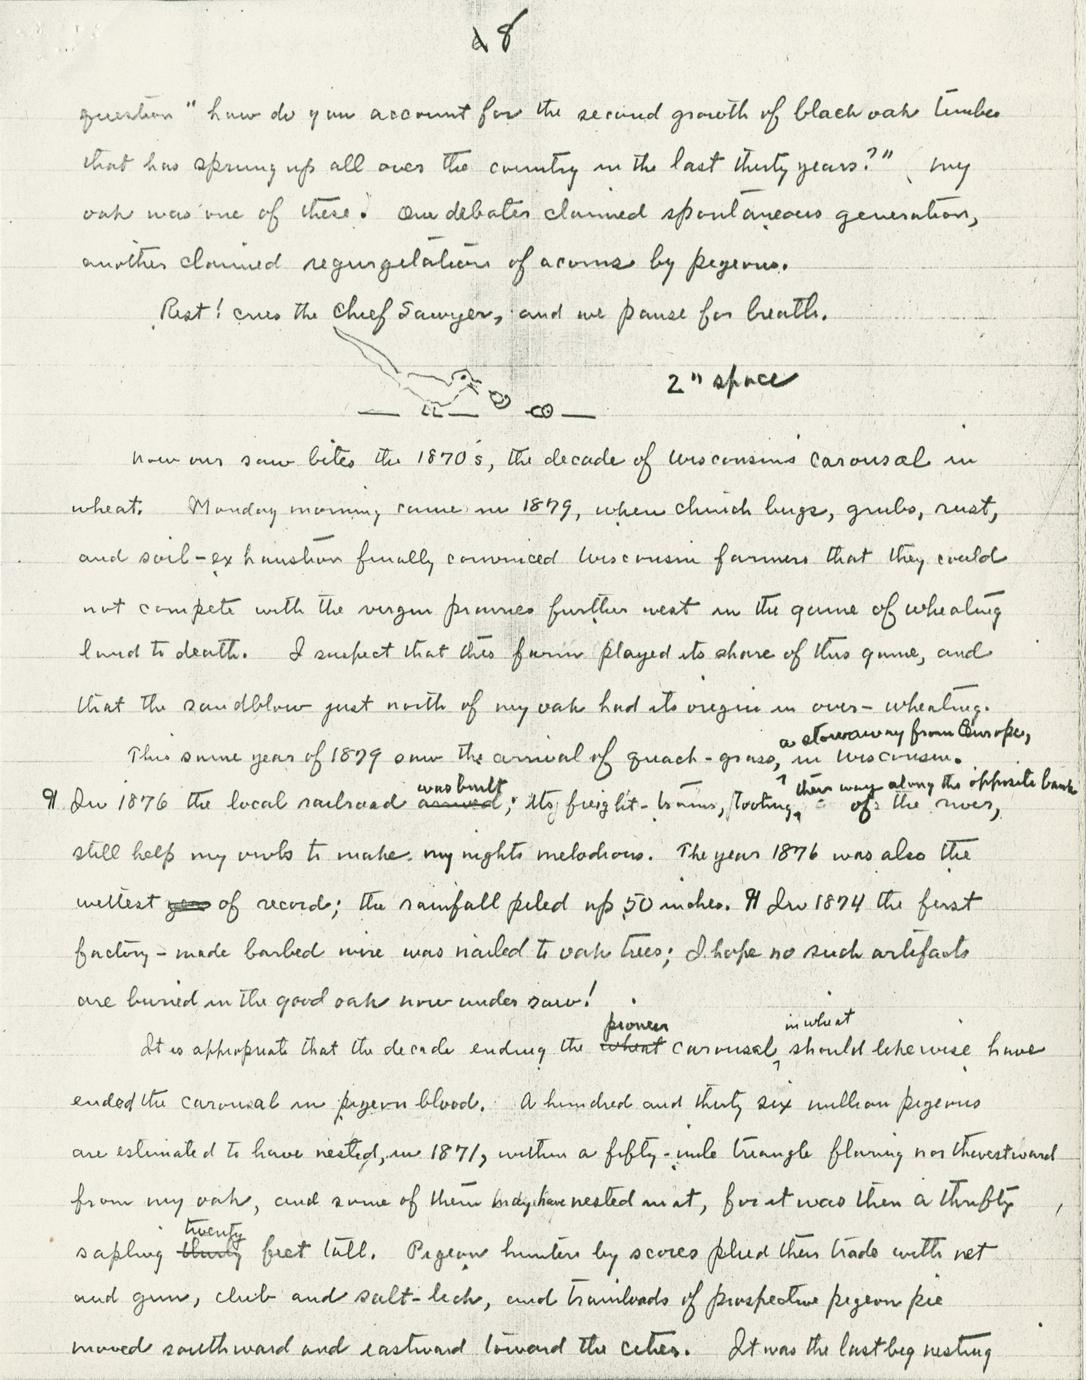 8
question "how do you account for the second growth of black oak timber
that has sprung up all over the country in the last thirty years?" My
oak was one of these. One debater claimed spontaneous generation,
another claimed regurgitation of acorns by pigeons.
Rest! cries the Chief Sawyer, and we pause for breath.
2" space
Now our saw bites the 1870's, the decade of Wisconsin's carousal in
wheat. Monday morning came in 1879, when chinch bugs, grubs, rust,
and soil-exhaustion finally convinced Wisconsin farmers that they could
not compete with the virgin prairies further west in the game of wheating
land to death. I suspect that this farm played its share of this game, and
that the sandblow just north of my oak had its origin in over-wheating.
a stowaway from Europe,
This same year of 1879 saw the arrival of quack-grass, in Wisconsin.
was built their way along the opposite bank
¶ In 1876 the local railroad arrived; its freight-trains, tooting, of the river,
still help my owls to make my nights melodious. The year 1876 was also the
wettest year of record; the rainfall piled up 50 inches. ¶ In 1874 the first
factory-made barbed wire was nailed to oak trees; I hope no such artifacts
are buried in the good oak now under saw!
pioneer in wheat
It is appropriate that the decade ending the wheat carousal, should likewise have
ended the carousal in pigeon blood. A hundred and thirty six million pigeons
are estimated to have nested, in 1871, within a fifty-mile triangle flaring northwestward
from my oak, and some of them may have nested in it, for it was then a thrifty
twenty
sapling thirty feet tall. Pigeon hunters by scores plied their trade with net
and gun, club and salt-lick, and trainloads of prospective pigeon pie
moved southward and eastward toward the cities. It was the last big nesting